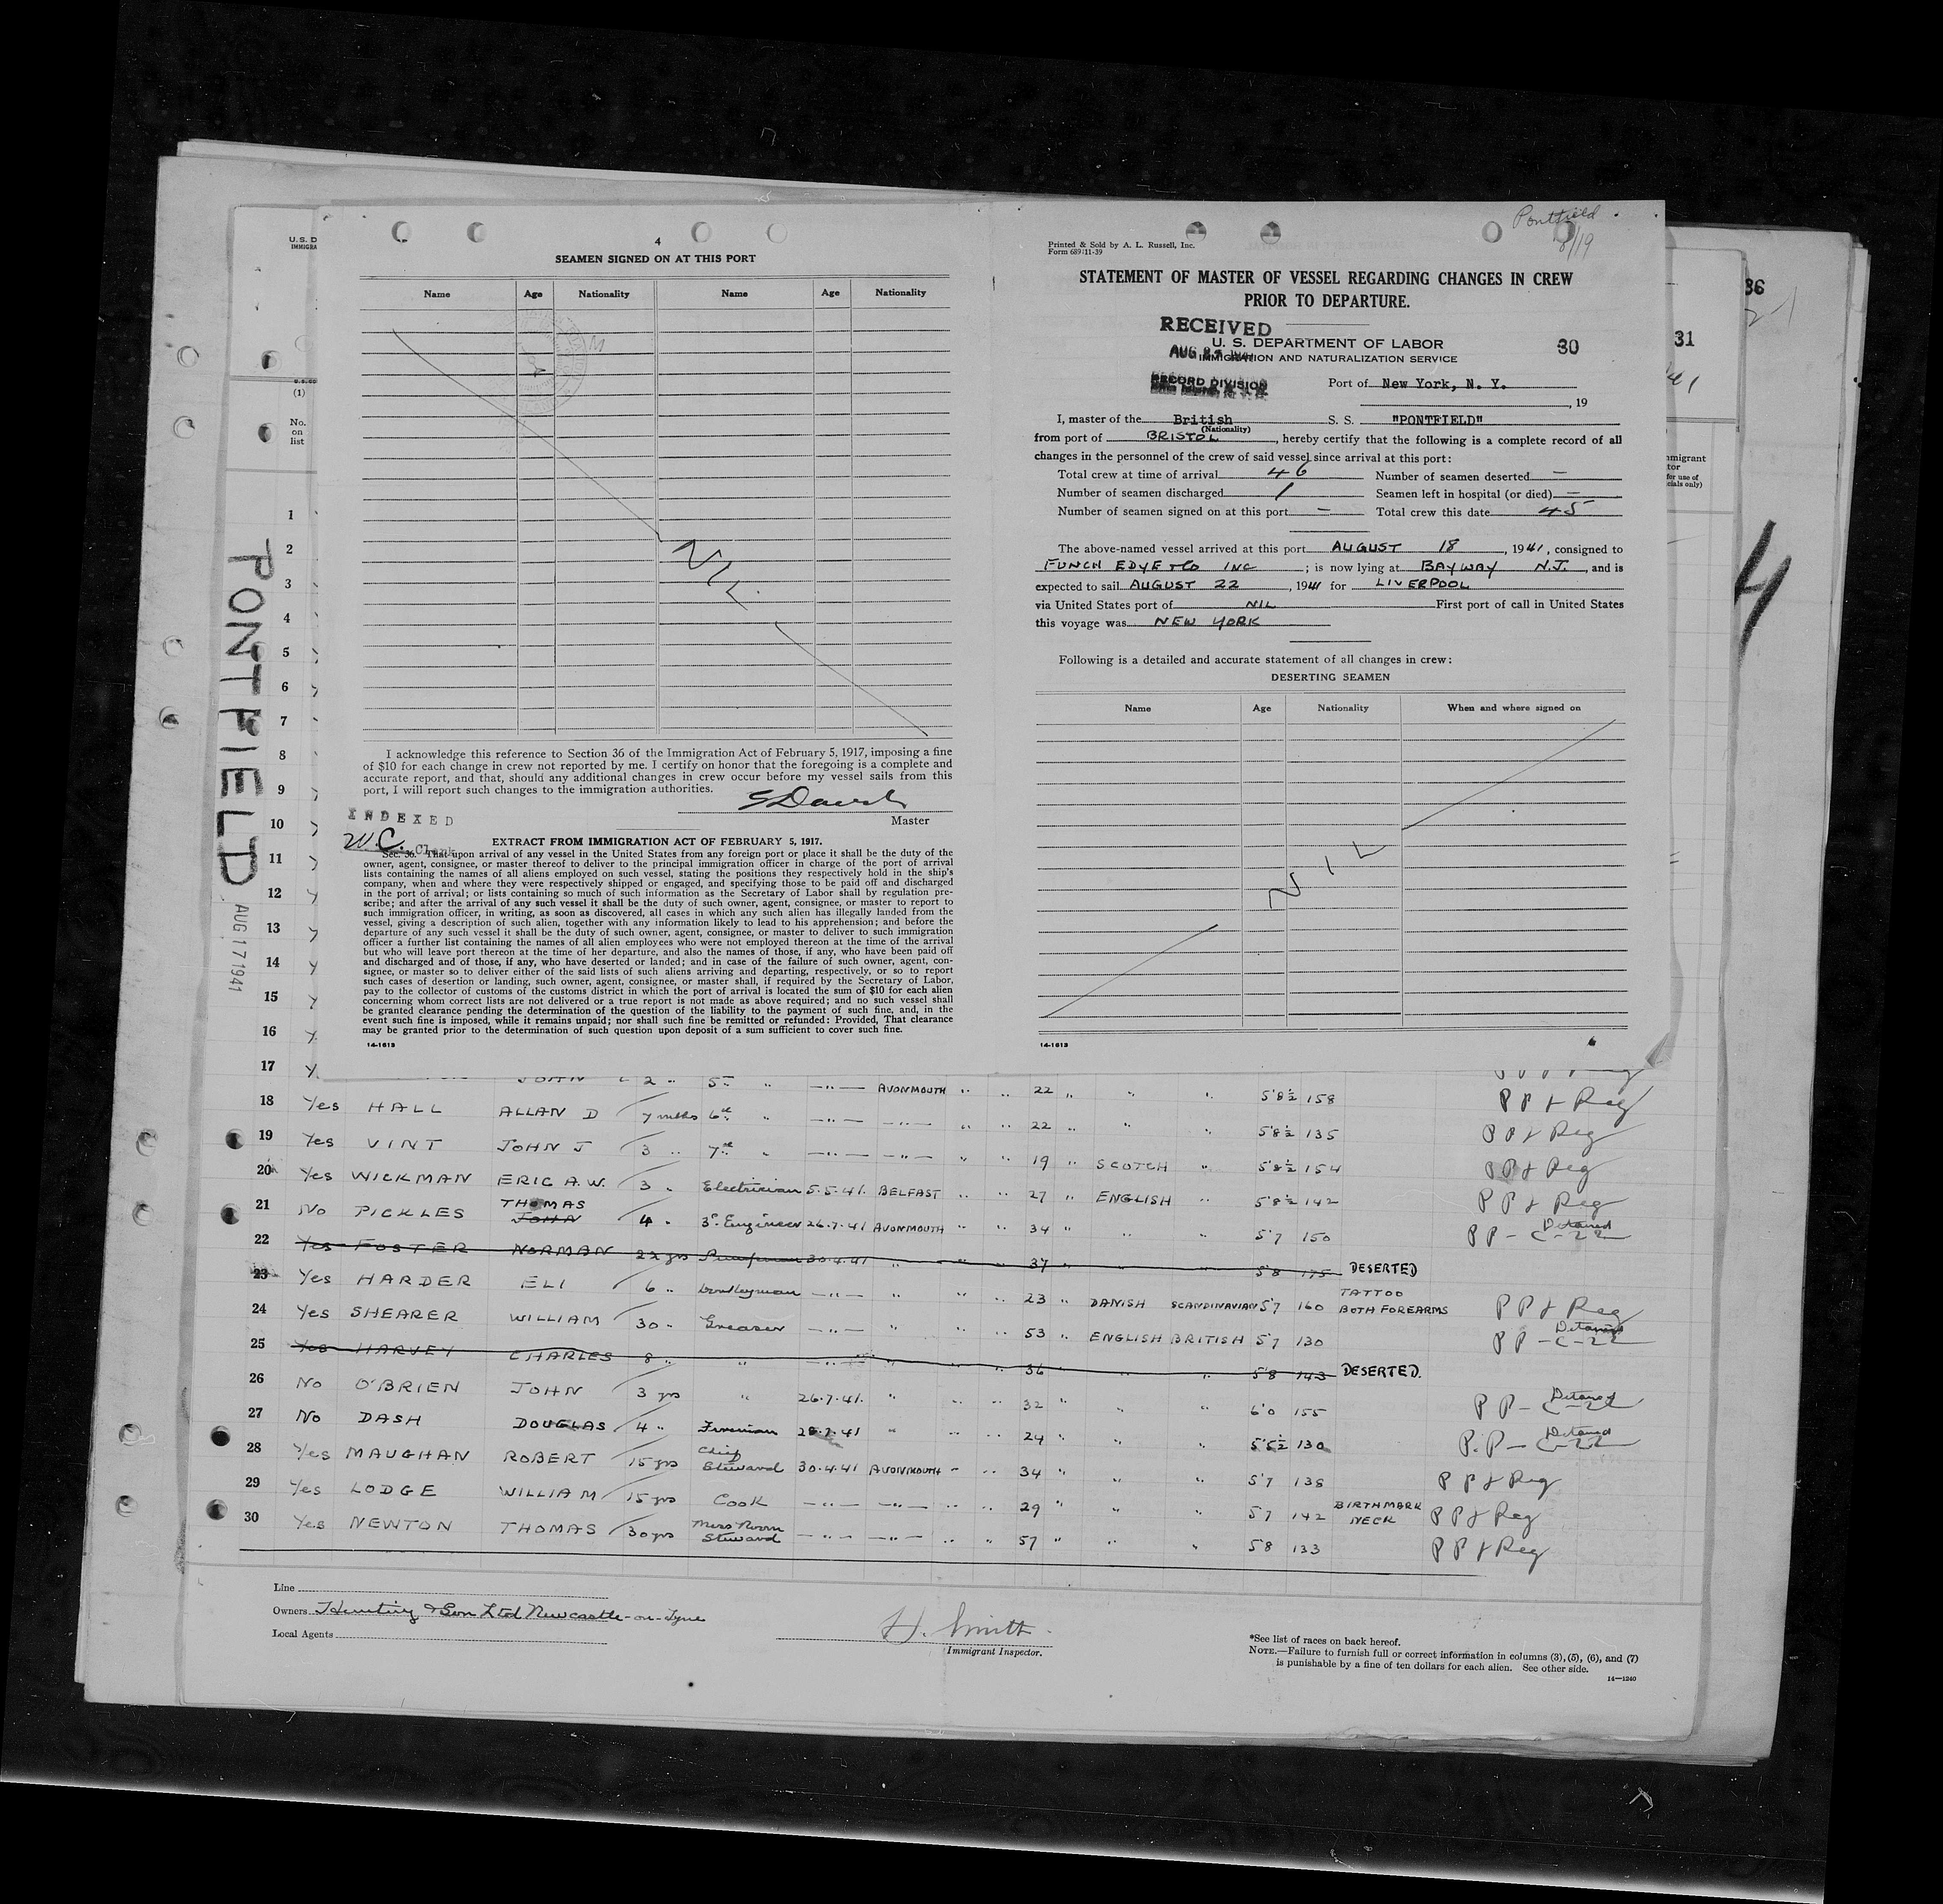 Pontfield
8/19
4
SEAMEN SIGNED ON AT THIS PORT
Name Age Nationality Name Age Nationality
NIL
I acknowledge this reference to Section 36 of the Immigration Act of February 5, 1917, imposing a fine
of $10 for each change in crew not reported by me. I certify on honor that the foregoing is a complete and
accurate report, and that, should any additional changes in crew occur before my vessel sails from this
port, I will report such changes to the immigration authorities.
Master
INDEXED
W.C. Clerk
EXTRACT FROM IMMIGRATION ACT OF FEBRUARY 5, 1917.
Sec. 36. That upon arrival of any vessel in the United States from any foreign port or place it shall be the duty of the
owner, agent, consignee, or master thereof to deliver to the principal immigration officer in charge of the port of arrival
lists containing the names of all aliens employed on such vessel, stating the positions they respectively hold in the ship's
company, when and where they were respectively shipped or engaged, and specifying those to be paid off and discharged
in the port of arrival; or lists containing so much of such information as the Secretary of Labor shall by regulation pre-
scribe; and after the arrival of any such vessel it shall be the duty of such owner, agent, consignee, or master to report to
such immigration officer, in writing, as soon as discovered, all cases in which any such alien has illegally landed from the
vessel, giving a description of such alien, together with any information likely to lead to his apprehension; and before the
departure of any such vessel it shall be the duty of such owner, agent, consignee, or master to deliver to such immigration
officer a further list containing the names of all alien employees who were not employed thereon at the time of the arrival
but who will leave port thereon at the time of her departure, and also the names of those, if any, who have been paid off
and discharged and of those, if any, who have deserted or landed; and in case of the failure of such owner, agent, con-
signee, or master so to deliver either of the said lists of such aliens arriving and departing, respectively, or so to report
such cases of desertion or landing, such owner, agent, consignee, or master shall, if required by the Secretary of Labor,
pay to the collector of customs of the customs district in which the port of arrival is located the sum of $10 for each alien
concerning whom correct lists are not delivered or a true report is not made as above required; and no such vessel shall
be granted clearance pending the determination of the question of the liability to the payment of such fine, and, in the
event such fine is imposed, while it remains unpaid; nor shall such fine be remitted or refunded: Provided, That clearance
may be granted prior to the determination of such question upon deposit of a sum sufficient to cover such fine.
14-1613
Printed & Sold by A. L. Russell, Inc.
Form 689:11-39
STATEMENT OF MASTER OF VESSEL REGARDING CHANGES IN CREW
PRIOR TO DEPARTURE.
RECEIVED
U. S. DEPARTMENT OF LABOR
AUG
IMMIGRATION AND NATURALIZATION SERVICE
30
RECORD DIVISION
Port of New York, N. Y.
, 19
I, master of the British S. S. "PONTFIELD"
(Nationality)
from port of BRISTOL, hereby certify that the following is a complete record of all
changes in the personnel of the crew of said vessel since arrival at this port:
Total crew at time of arrival 46 Number of seamen deserted —
Number of seamen discharged 1 Seamen left in hospital (or died) —
Number of seamen signed on at this port — Total crew this date 45
The above-named vessel arrived at this port AUGUST 18, 1941, consigned to
FUNCH EDYE & Co INC; is now lying at BAYWAY N.J., and is
expected to sail AUGUST 22, 1941 for LIVERPOOL
via United States port of NIL First port of call in United States
this voyage was NEW YORK
Following is a detailed and accurate statement of all changes in crew:
DESERTING SEAMEN
Name Age Nationality When and where signed on
NIL
14-1613
U.S. D
IMMIGRA
(1)
No.
on
list
36
31
41
4
mmigrant
tor
for use of
cials only)
PONTFIELD
AUG 17 1941
1
2
3
4
5
6
7
8
9
10
11
12
13
14
15
16
17 JOHN 2 " 5th " —"— AVONMOUTH " " 22 " " "
18 Yes HALL ALLAN D 7 mths 6th " —"— —"— " " 22 " " " 5'8½ 158 PP & Reg
19 Yes VINT JOHN J 3 " 7th " —"— —"— " " 19 " SCOTCH " 5'8½ 135 PP & Reg
20 Yes WICKMAN ERIC A.W. 3 " Electrician 5.5.41. BELFAST " " 27 " ENGLISH " 5'8½ 154 PP & Reg
21 No PICKLES THOMAS JOHN 4 " 3rd Engineer 26.7.41 AVONMOUTH " " 34 " " " 5'8½ 142 PP & Reg
5'7 150 PP - Detained C-22
22 Yes FOSTER NORMAN 22 yrs Pumpman 30.4.41 " " " 37 " " 5'8 175 DESERTED
23 Yes HARDER ELI 6 " Donkeyman —"— " " " 23 " DANISH SCANDINAVIAN 5'7 160 TATTOO BOTH FOREARMS PP & Reg
24 Yes SHEARER WILLIAM 30 " Greaser —"— " " " 53 " ENGLISH BRITISH 5'7 130 PP - Detained C-22
25 Yes HARVEY CHARLES 8 " " —"— " " " 36 " " 5'8 143 DESERTED.
26 No O'BRIEN JOHN 3 yrs " 26.7.41. " " " 32 " " " 6'0 155 PP - Detained C-22
27 No DASH DOUGLAS 4 " Fireman 28.7.41 " " " 24 " " " 5'5½ 130 P.P - Detained C-22
28 Yes MAUGHAN ROBERT 15 yrs Chief Steward 30.4.41 AVONMOUTH " " 34 " " " 5'7 138 PP & Reg
29 Yes LODGE WILLIAM 15 yrs Cook —"— —"— " " 29 " " " 5'7 142 BIRTHMARK NECK PP & Reg
30 Yes NEWTON THOMAS 30 yrs Mess Room Steward —"— —"— " " 57 " " " 5'8 133 PP & Reg
Line
Owners Hunting & Son Ltd Newcastle-on-Tyne
Local Agents
H. Smith
Immigrant Inspector.
*See list of races on back hereof.
NOTE.—Failure to furnish full or correct information in columns (3), (5), (6), and (7)
is punishable by a fine of ten dollars for each alien. See other side.
14—1240